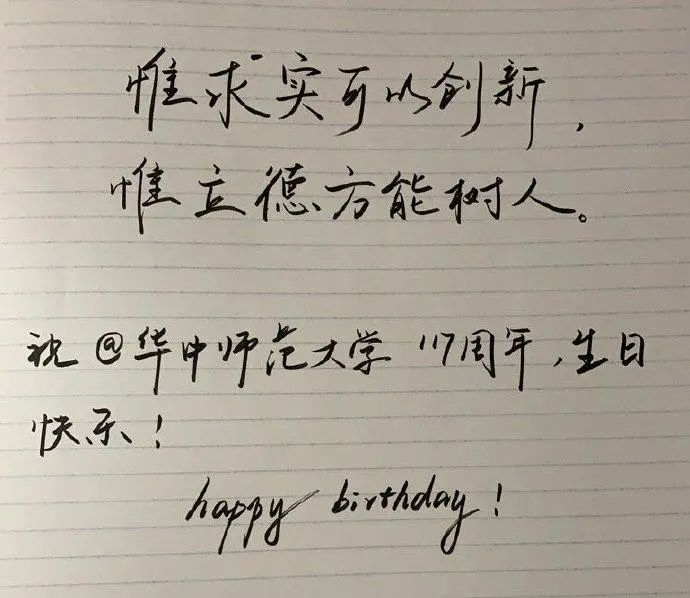 惟求实可以创新,
惟立德方能树人。
祝@华中师范大学 117周年,生日
快乐!
happy birthday!